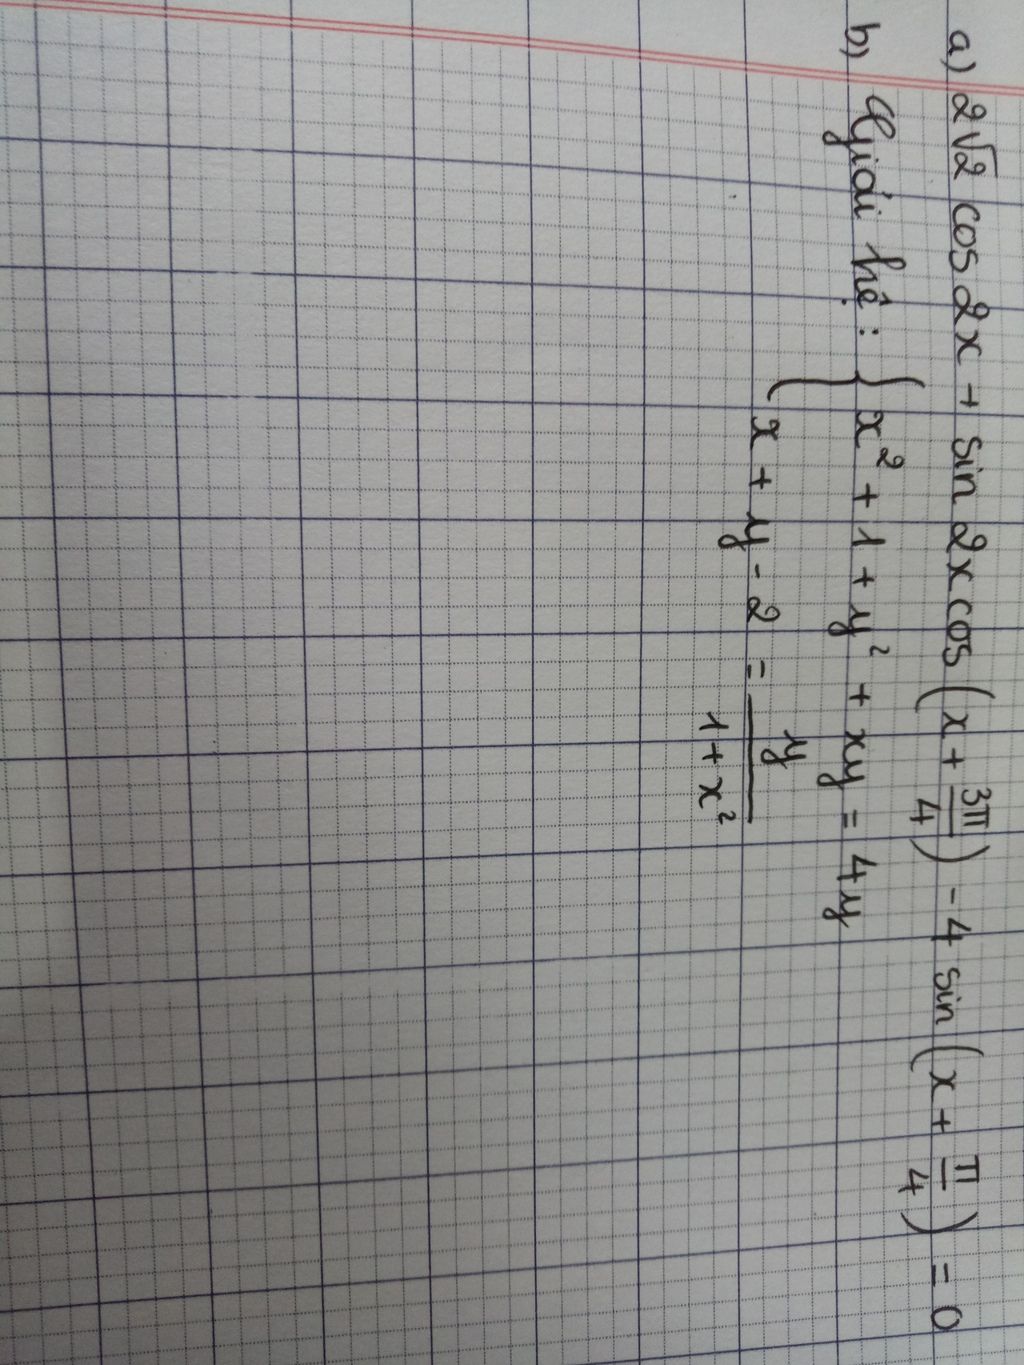 a) 2√2 cos 2x + sin 2x cos (x + 3π/4) - 4 sin (x + π/4) = 0
b) Giải hệ : { x² + 1 + y² + xy = 4y
x + y - 2 = y/(1 + x²)